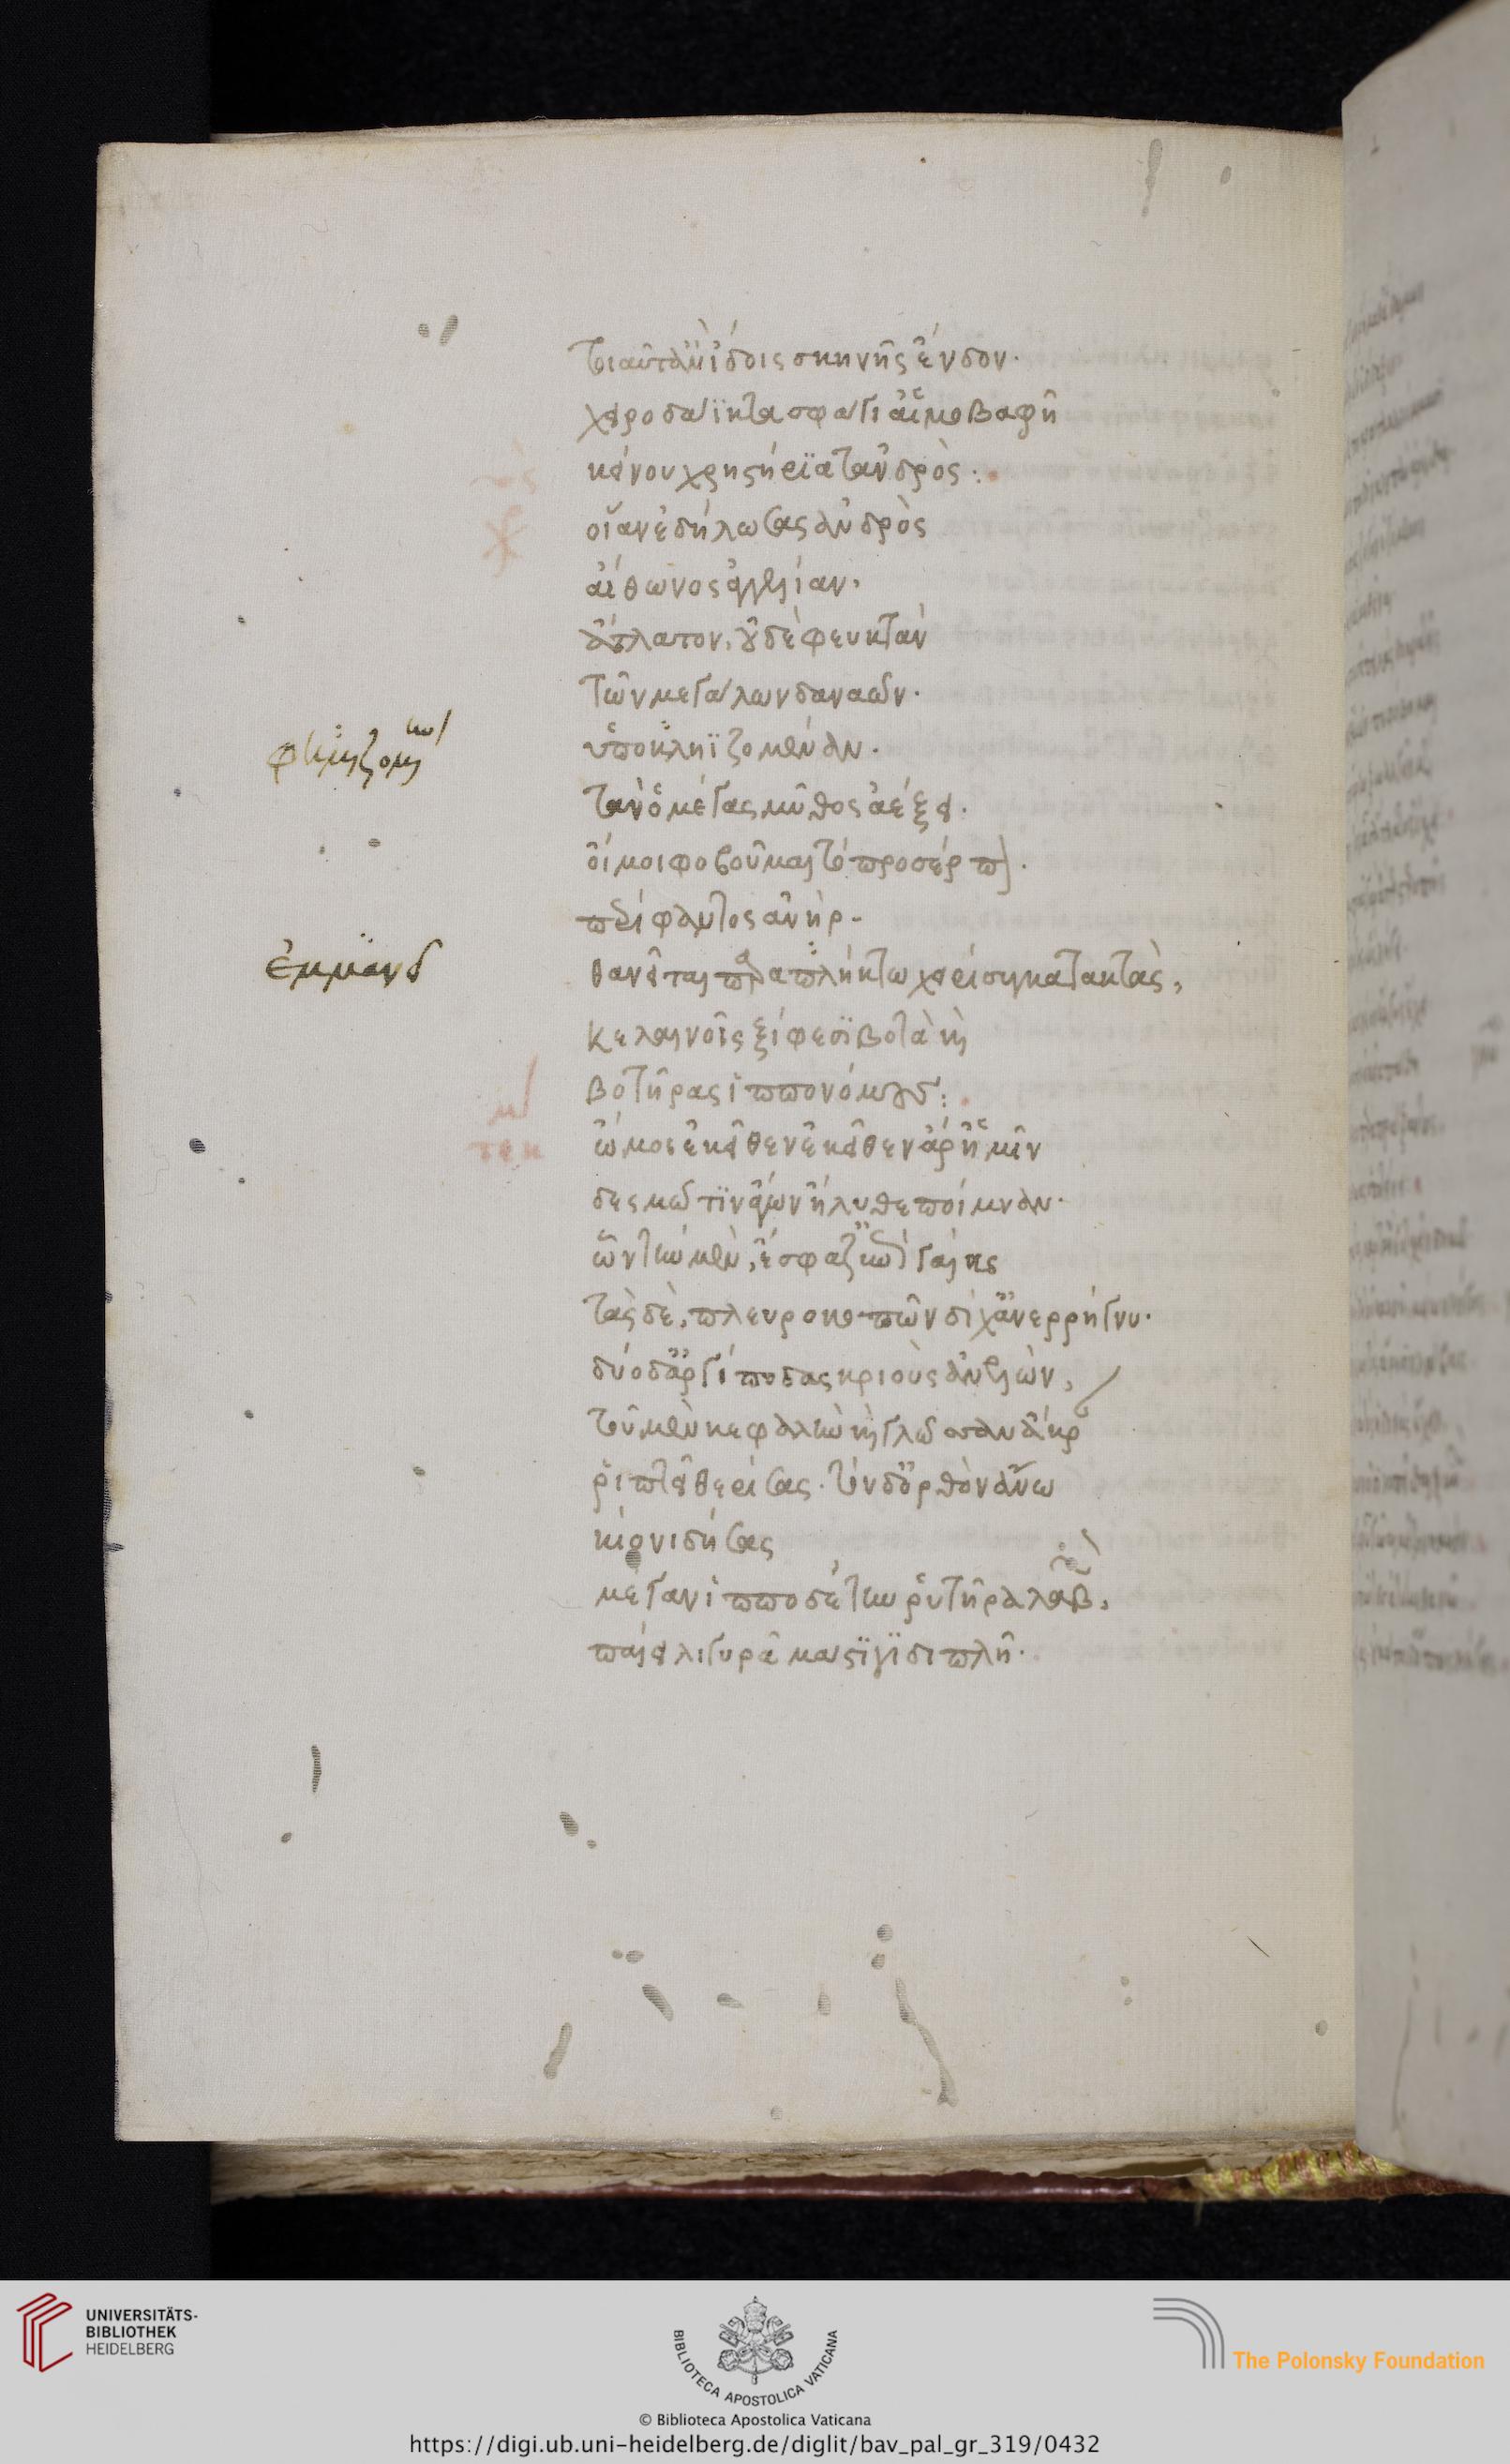 τοιαῦτ' ἂν ἴδοις σκηνῆς ἔνδον·
χειροδάϊκτα σφάγι' αἱμοβαφῆ
κείνου χρηστήρια τἀνδρὸς:
οἵαν ἐδήλωσας ἀνδρὸς
αἴθωνος ἀγγελίαν,
ἄτλατον, οὐδὲ φευκτὰν
τῶν μεγάλων δαναῶν·
ὑποκληϊζομέναν·
τὰν ὁ μέγας μῦθος ἀέξει·
οἴμοι φοβοῦμαι τὸ προσέρπον·
περίφαντος ἀνὴρ
θανεῖται παραπλήκτω χειρὶ συγκατακτὰς,
κελαινοῖς ξίφεσι βοτὰ καὶ
βοτῆρας ἱππονόμους:
ὤμοι ἐκεῖθεν ἐκεῖθεν ἄρ' ἡμῖν
δεσμῶτιν ἄγων ἤλυθε ποίμναν·
ὧν τὴν μὲν, ἔσφαζ' ἐπὶ γαίης
τὰς δὲ, πλευροκοπῶν δίχ' ἀνερρήγνυ·
δύο δ' ἀργίποδας κριοὺς ἀνελὼν,
τοῦ μὲν κεφαλὴν καὶ γλῶσσαν ἄκραν
ῥιπτεῖ θερίσας· τὸν δ' ὀρθὸν ἄνω
κίονι δήσας
μέγαν ἱπποδέτην ῥυτῆρα λαβὼν,
παίει λιγυρᾷ μάστιγι διπλῇ·
ἐμμανεῖ
UNIVERSITÄTS-
BIBLIOTHEK
HEIDELBERG
BIBLIOTECA APOSTOLICA VATICANA
The Polonsky Foundation
© Biblioteca Apostolica Vaticana
https://digi.ub.uni-heidelberg.de/diglit/bav_pal_gr_319/0432